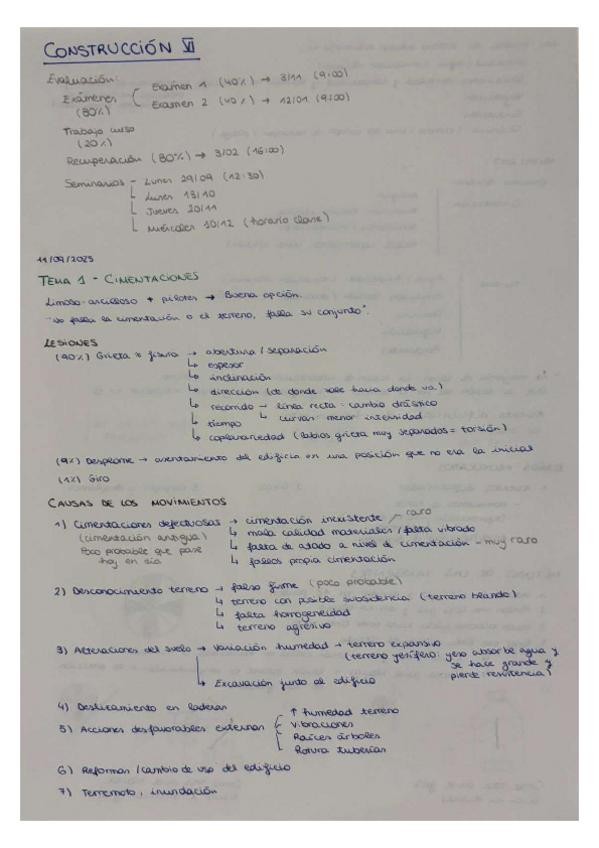 CONSTRUCCIÓN VI
Evaluación:
Exámenes (80%)
Examen 1 (40%) → 3/11 (9:00)
Examen 2 (40%) → 12/01 (9:00)
Trabajo curso (20%)
Recuperación (80%) → 3/02 (16:00)
Seminarios - Lunes 29/09 (12:30)
↳ Lunes 13/10
↳ Jueves 20/11
↳ Miércoles 10/12 (horario clase)
11/09/2025
TEMA 1 - CIMENTACIONES
Limoso-arcilloso + pilotes → Buena opción.
"No falla la cimentación o el terreno, falla su conjunto".
LESIONES
(90%) Grieta ≠ fisura → abertura / separación
↳ espesor
↳ inclinación
↳ dirección (de donde sale hacia donde va)
↳ recorrido - línea recta: cambio drástico
↳ curvas: menor intensidad
↳ tiempo
↳ coplanariedad (labios grieta muy separados = torsión)
(9%) Desplome → asentamiento del edificio en una posición que no era la inicial
(1%) Giro
CAUSAS DE LOS MOVIMIENTOS
1) Cimentaciones defectuosas → cimentación inexistente - raro
(cimentación antigua) ↳ mala calidad materiales / falta vibrado
Poco probable que pase ↳ falta de atado a nivel de cimentación - muy raro
hoy en día ↳ fallos propia cimentación
2) Desconocimiento terreno → falso firme (poco probable)
↳ terreno con posible subsidencia (terreno blando)
↳ falta homogeneidad
↳ terreno agresivo
3) Alteraciones del suelo → variación humedad → terreno expansivo
(terreno yesífero: yeso absorbe agua y
se hace grande y
pierde resistencia)
↳ Excavación junto al edificio
4) Deslizamiento en laderas
5) Acciones desfavorables externas
↑ humedad terreno
Vibraciones
Raíces árboles
Rotura tuberías
6) Reformas / cambio de uso del edificio
7) Terremoto, inundación